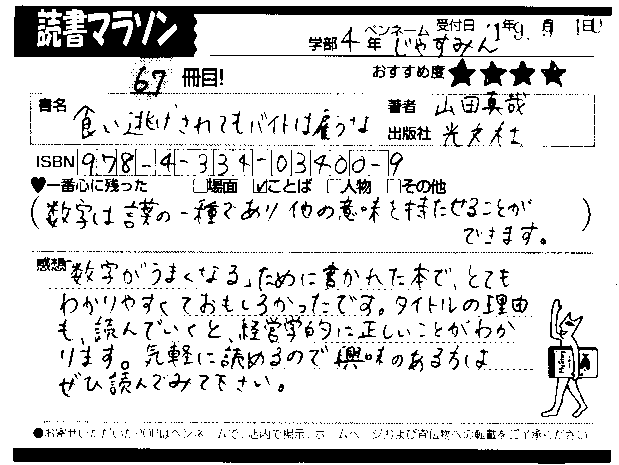 読書マラソン
学部4年 ペンネーム じゃすみん 受付日
67 冊目!
おすすめ度 ★★★★
書名 食い逃げされてもバイトは雇うな
著者 山田真哉
出版社 光文社
ISBN 978-4-334-03400-9
♥一番心に残った □場面 ☑ことば □人物 □その他
(数字は言葉の一種であり他の意味を持たせることが
できます。)
感想 「数字がうまくなる」ために書かれた本で、とても
わかりやすくておもしろかったです。タイトルの理由
も、読んでいくと、経営学的に正しいことがわか
ります。気軽に読めるので興味のある方は
ぜひ読んでみて下さい。
●お寄せいただいたPOPはペンネームで、店内で掲示、ホームページおよび宣伝物への転載をご了承ください